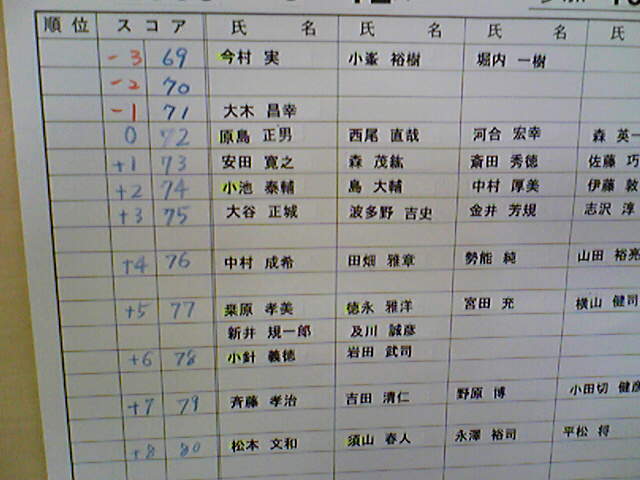 順位 スコア 氏 名 氏 名 氏 名 氏
-3 69 今村 実 小峯 裕樹 堀内 一樹
-2 70
-1 71 大木 昌幸
0 72 原島 正男 西尾 直哉 河合 宏幸 森 英一
+1 73 安田 寛之 森 茂紘 斎田 秀徳 佐藤 巧
+2 74 小池 泰輔 島 大輔 中村 厚美 伊藤 敦
+3 75 大谷 正城 波多野 吉史 金井 芳規 志沢 淳
+4 76 中村 成希 田畑 雅章 勢能 純 山田 裕亮
+5 77 栗原 孝美 徳永 雅洋 宮田 充 横山 健司
新井 規一郎 及川 誠彦
+6 78 小針 義徳 岩田 武司
+7 79 斉藤 孝治 吉田 清仁 野原 博 小田切 健彦
+8 80 松本 文和 須山 春人 永澤 裕司 平松 将